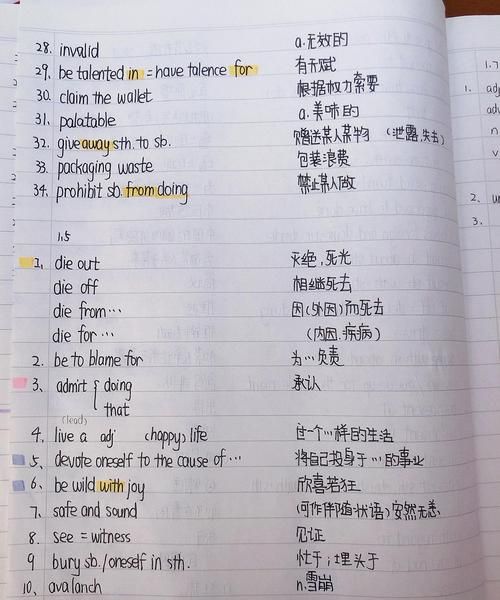 28. invalid a.无效的
29. be talented in = have talence for 有天赋
30. claim the wallet 根据权力索要
31. palatable a.美味的
32. give away sth. to sb. 赠送某人某物 (泄露,失去)
33. packaging waste 包装浪费
34. prohibit sb. from doing 禁止某人做
1.5
1. die out 灭绝,死光
die off 相继死去
die from… 因(外因)而死去
die for … (内因.疾病)
2. be to blame for 为…负责
3. admit { doing 承认
that
(lead)
4. live a adj (happy) life 过一个…样的生活
5. devote oneself to the cause of … 将自己投身于…的事业
6. be wild with joy 欣喜若狂
7. safe and sound (可作伴随状语)安然无恙
8. see = witness 见证
9 bury sb. / oneself in sth. 忙于;埋头于
10. avalanch n.雪崩
1.7
1. adj
adv
n
v
2. un
3.